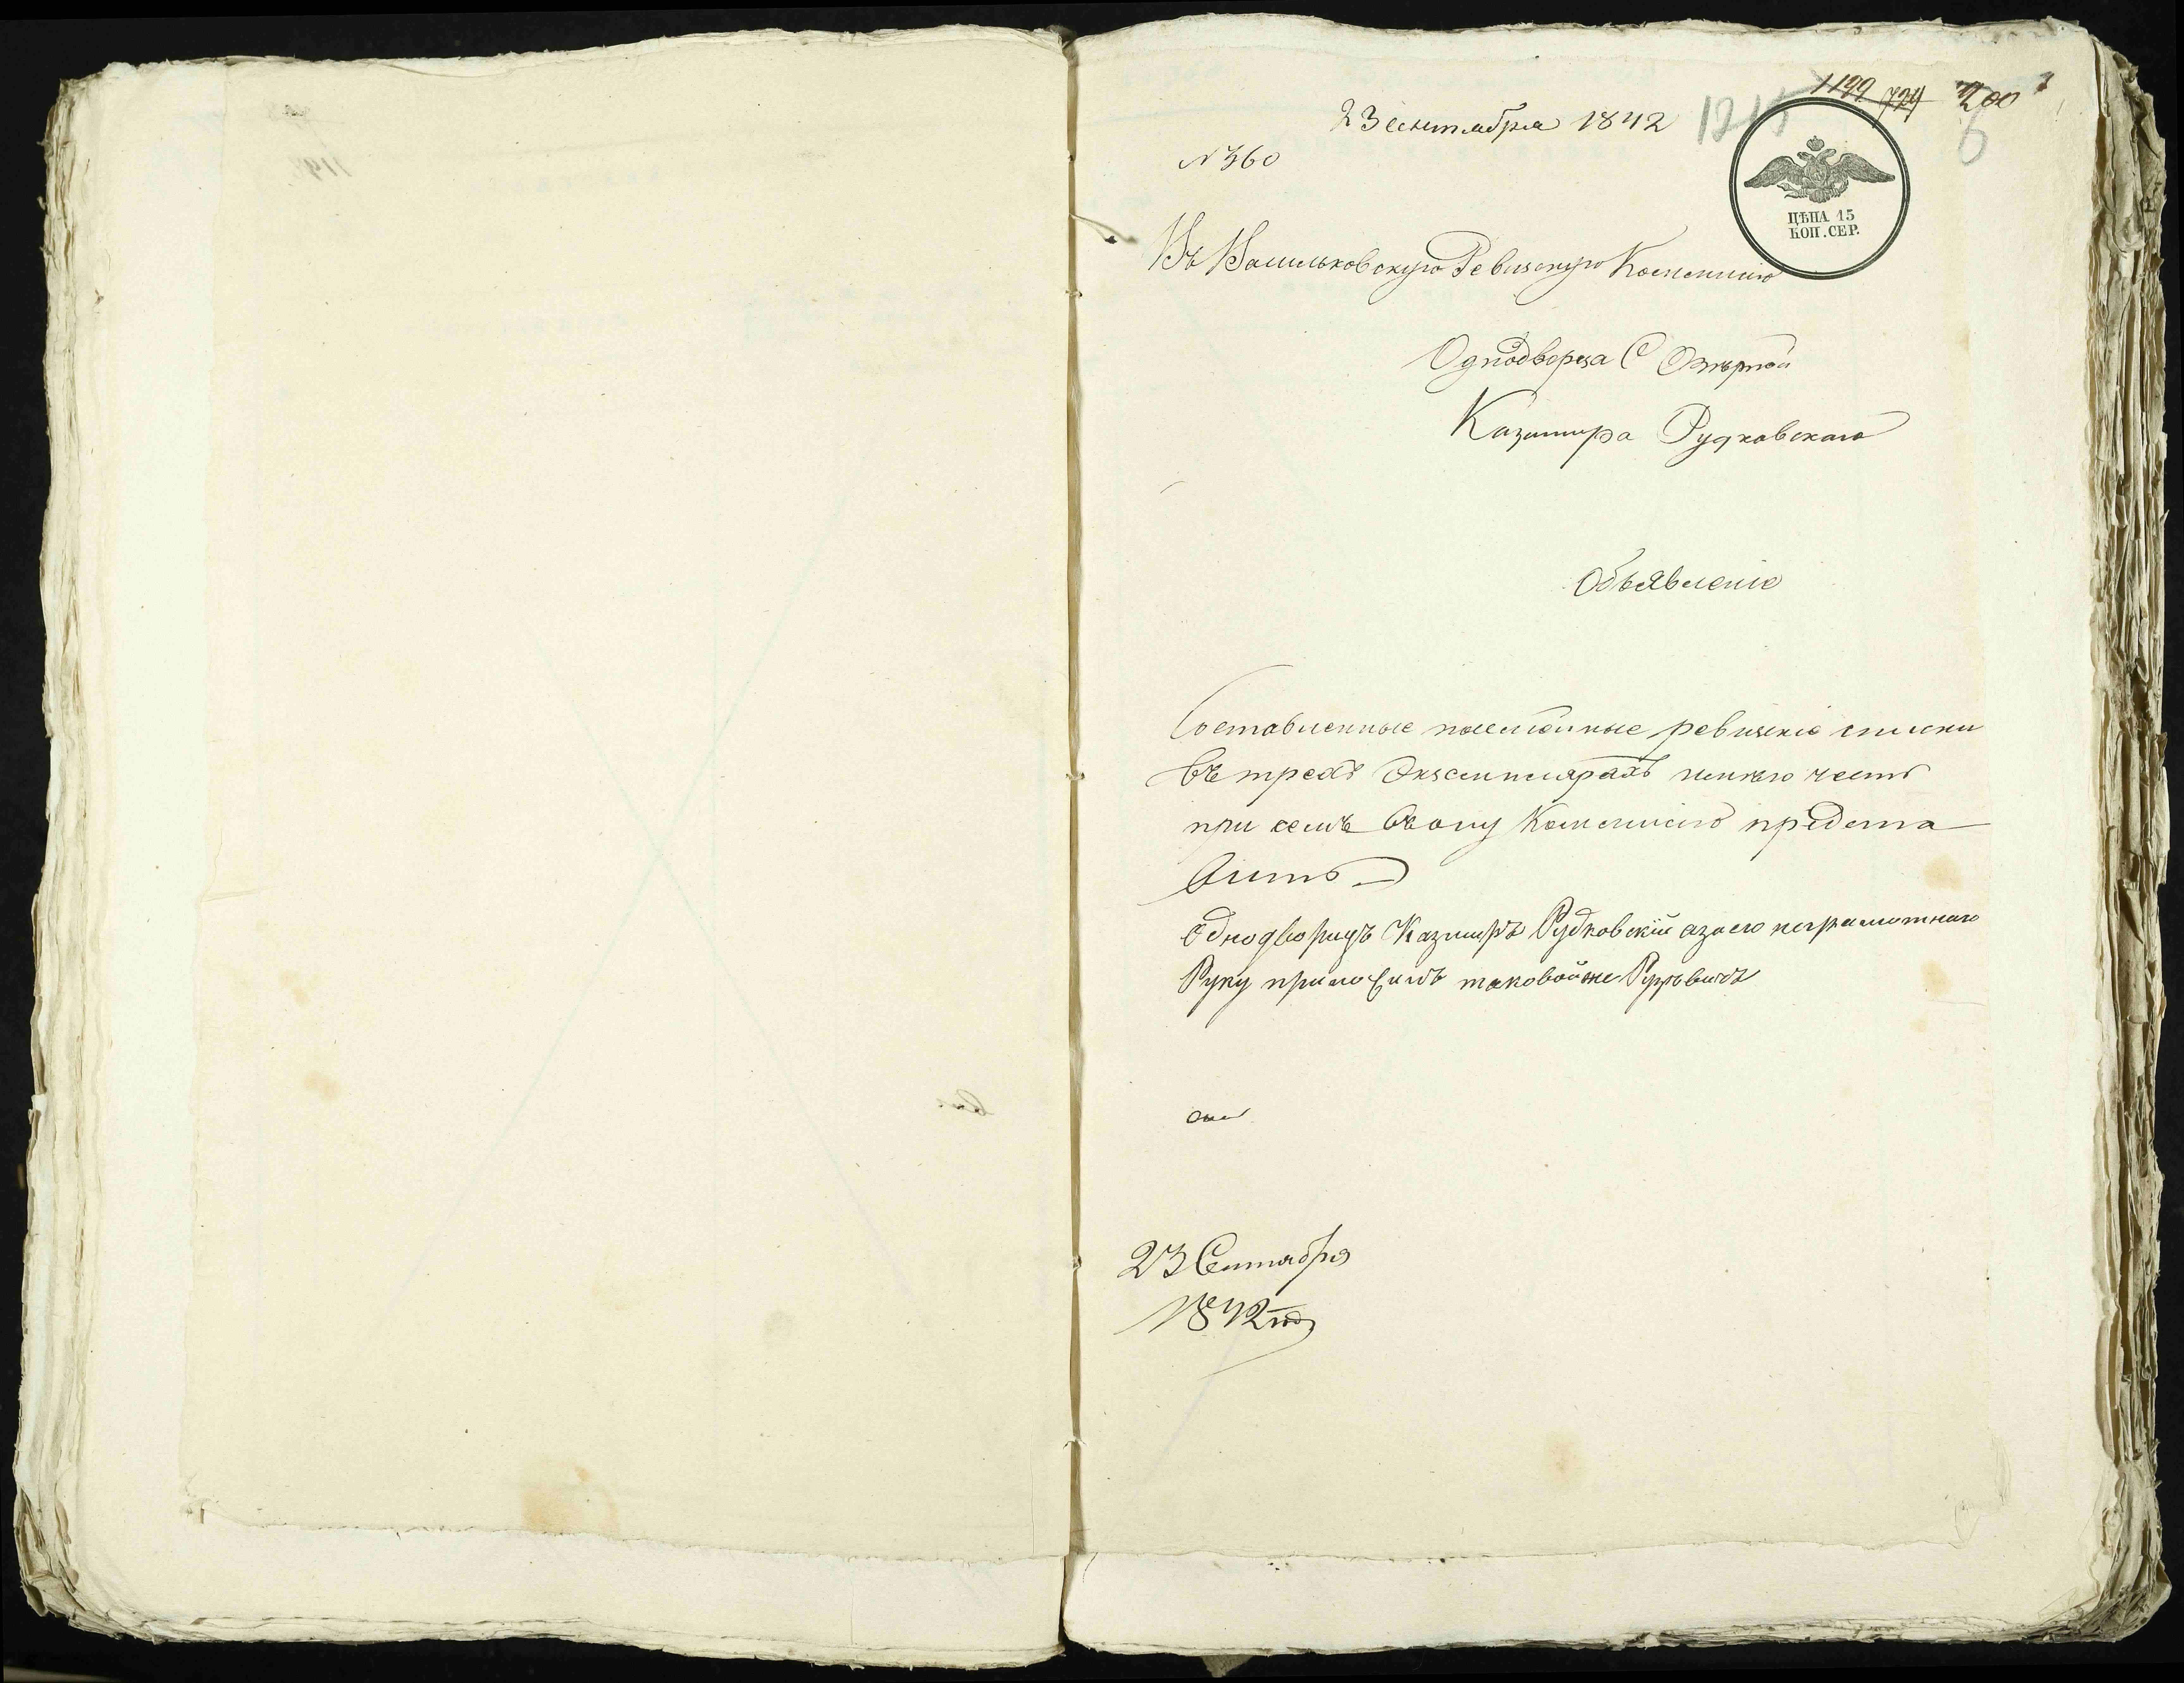 1199 724 200
23 сентября 1842
1215
6
№ 360
ЦѢНА 15
КОП. СЕР.
Въ Васильковскую Ревизскую Коммисию
Однодворца С Озѣрной
Казимира Рудковскаго
Объявленіе
Составленные посемейные ревизскіе списки
въ трехъ Экземплярахъ имѣю честь
при семъ въ ону Коммисію предста
вить
Однодворецъ Казимиръ Рудковскій а за его неграмотнаго
Руку приложилъ таковой же
23 Сентября
1842 года